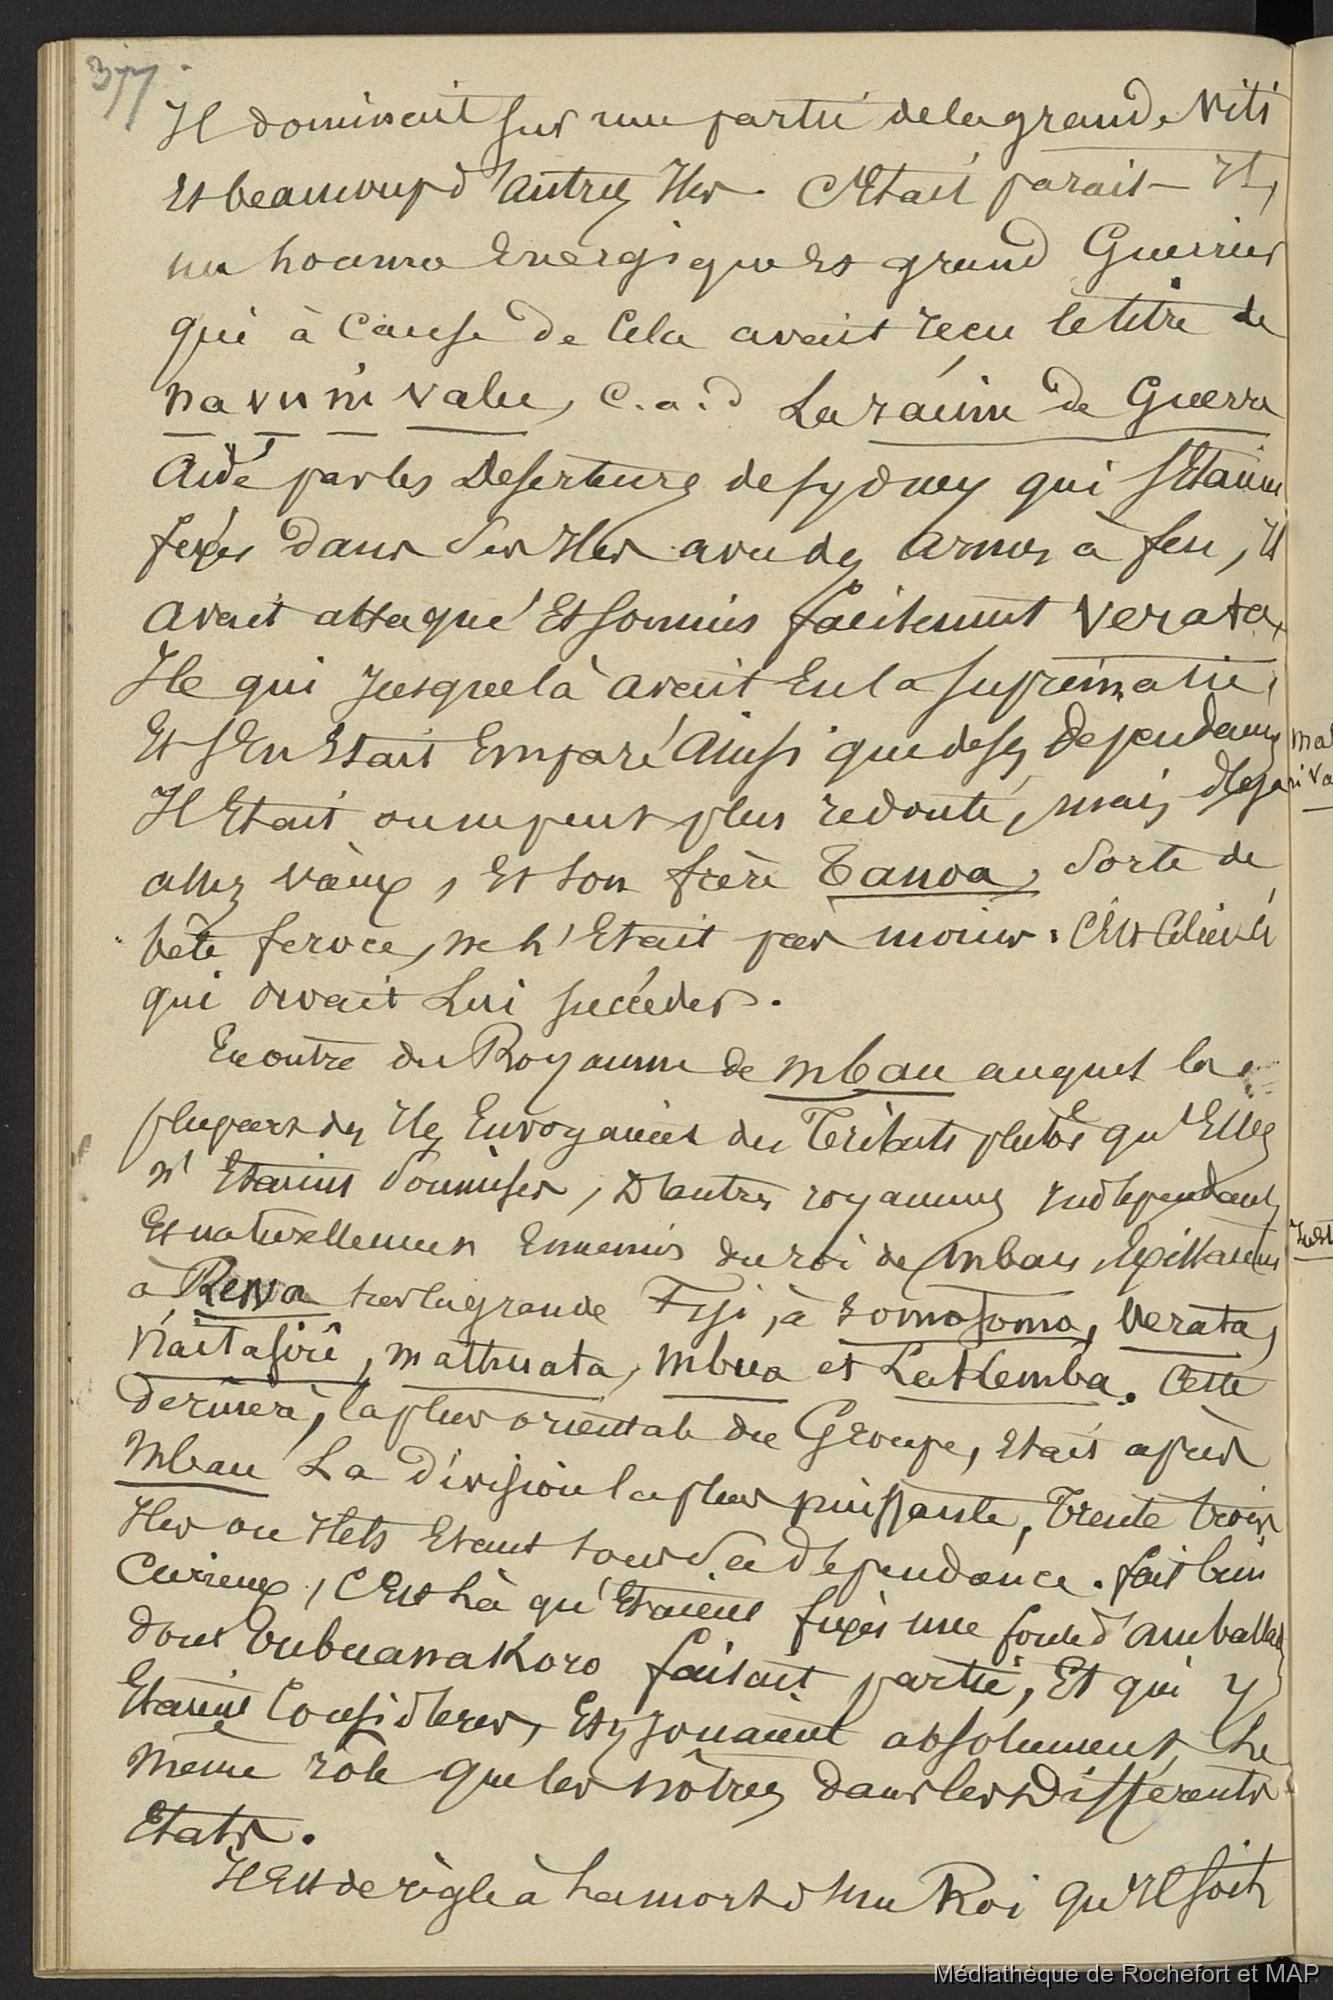 377
Il dominait sur une partie de la grande Viti
Et beaucoup d'autres Iles. C'Etait parait-Il,
un homme Energique Et grand Guerrier
qui à Cause de Cela avait reçu le titre de
na vu ni valu, c.a.d La racine de Guerre
Aidé par les Deserteurs de Sydney qui s'Etaient
fixés dans ses Iles avec des armes à feu, Il
avait attaqué Et soumis facilement Verata,
Ile qui Jusque là avait Eu la suprématie,
Et s'En Etait Emparé Ainsi que de ses dependances
Il Etait on ne peut plus redouté, mais déja
assez vieux, Et son frère Tanoa, sorte de
bête feroce, ne l'Etait pas moins. C'Est Celui là
qui devait Lui succèder.
En outre du Royaume de Mbau auquel la
plupart des Iles Envoyaient des Tributs plutôt qu'Elles
n'Etaient Soumises, D'autres royaumes Indépendants
Et naturellement Ennemis du roi de Mbau, Existaient
à Rewa sur la grande Fiji, à Somosomo, Verata,
Naitasiri, Mathuata, Mbua et Lathemba. Cette
dernière, la plus orientale du Groupe, Etait après
Mbau La division la plus puissante, Trente trois
Iles ou Ilets Etant sous sa dépendance. fait bien
Curieux, C'Est là qu'Etaient fixés une foule d'ambassad
dont Tubuanakoro faisait partie, Et qui y
Etaient Considérés, Et y Jouaient absolument, Le
même rôle que les nôtres dans les Différents
Etats.
Il Est de règle à La mort d'un Roi qu'Il soit